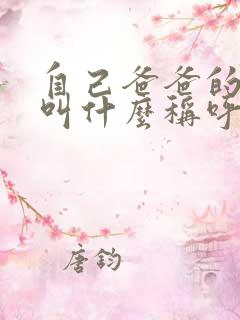 自己爸爸的
叫什麼稱呼
唐鈞